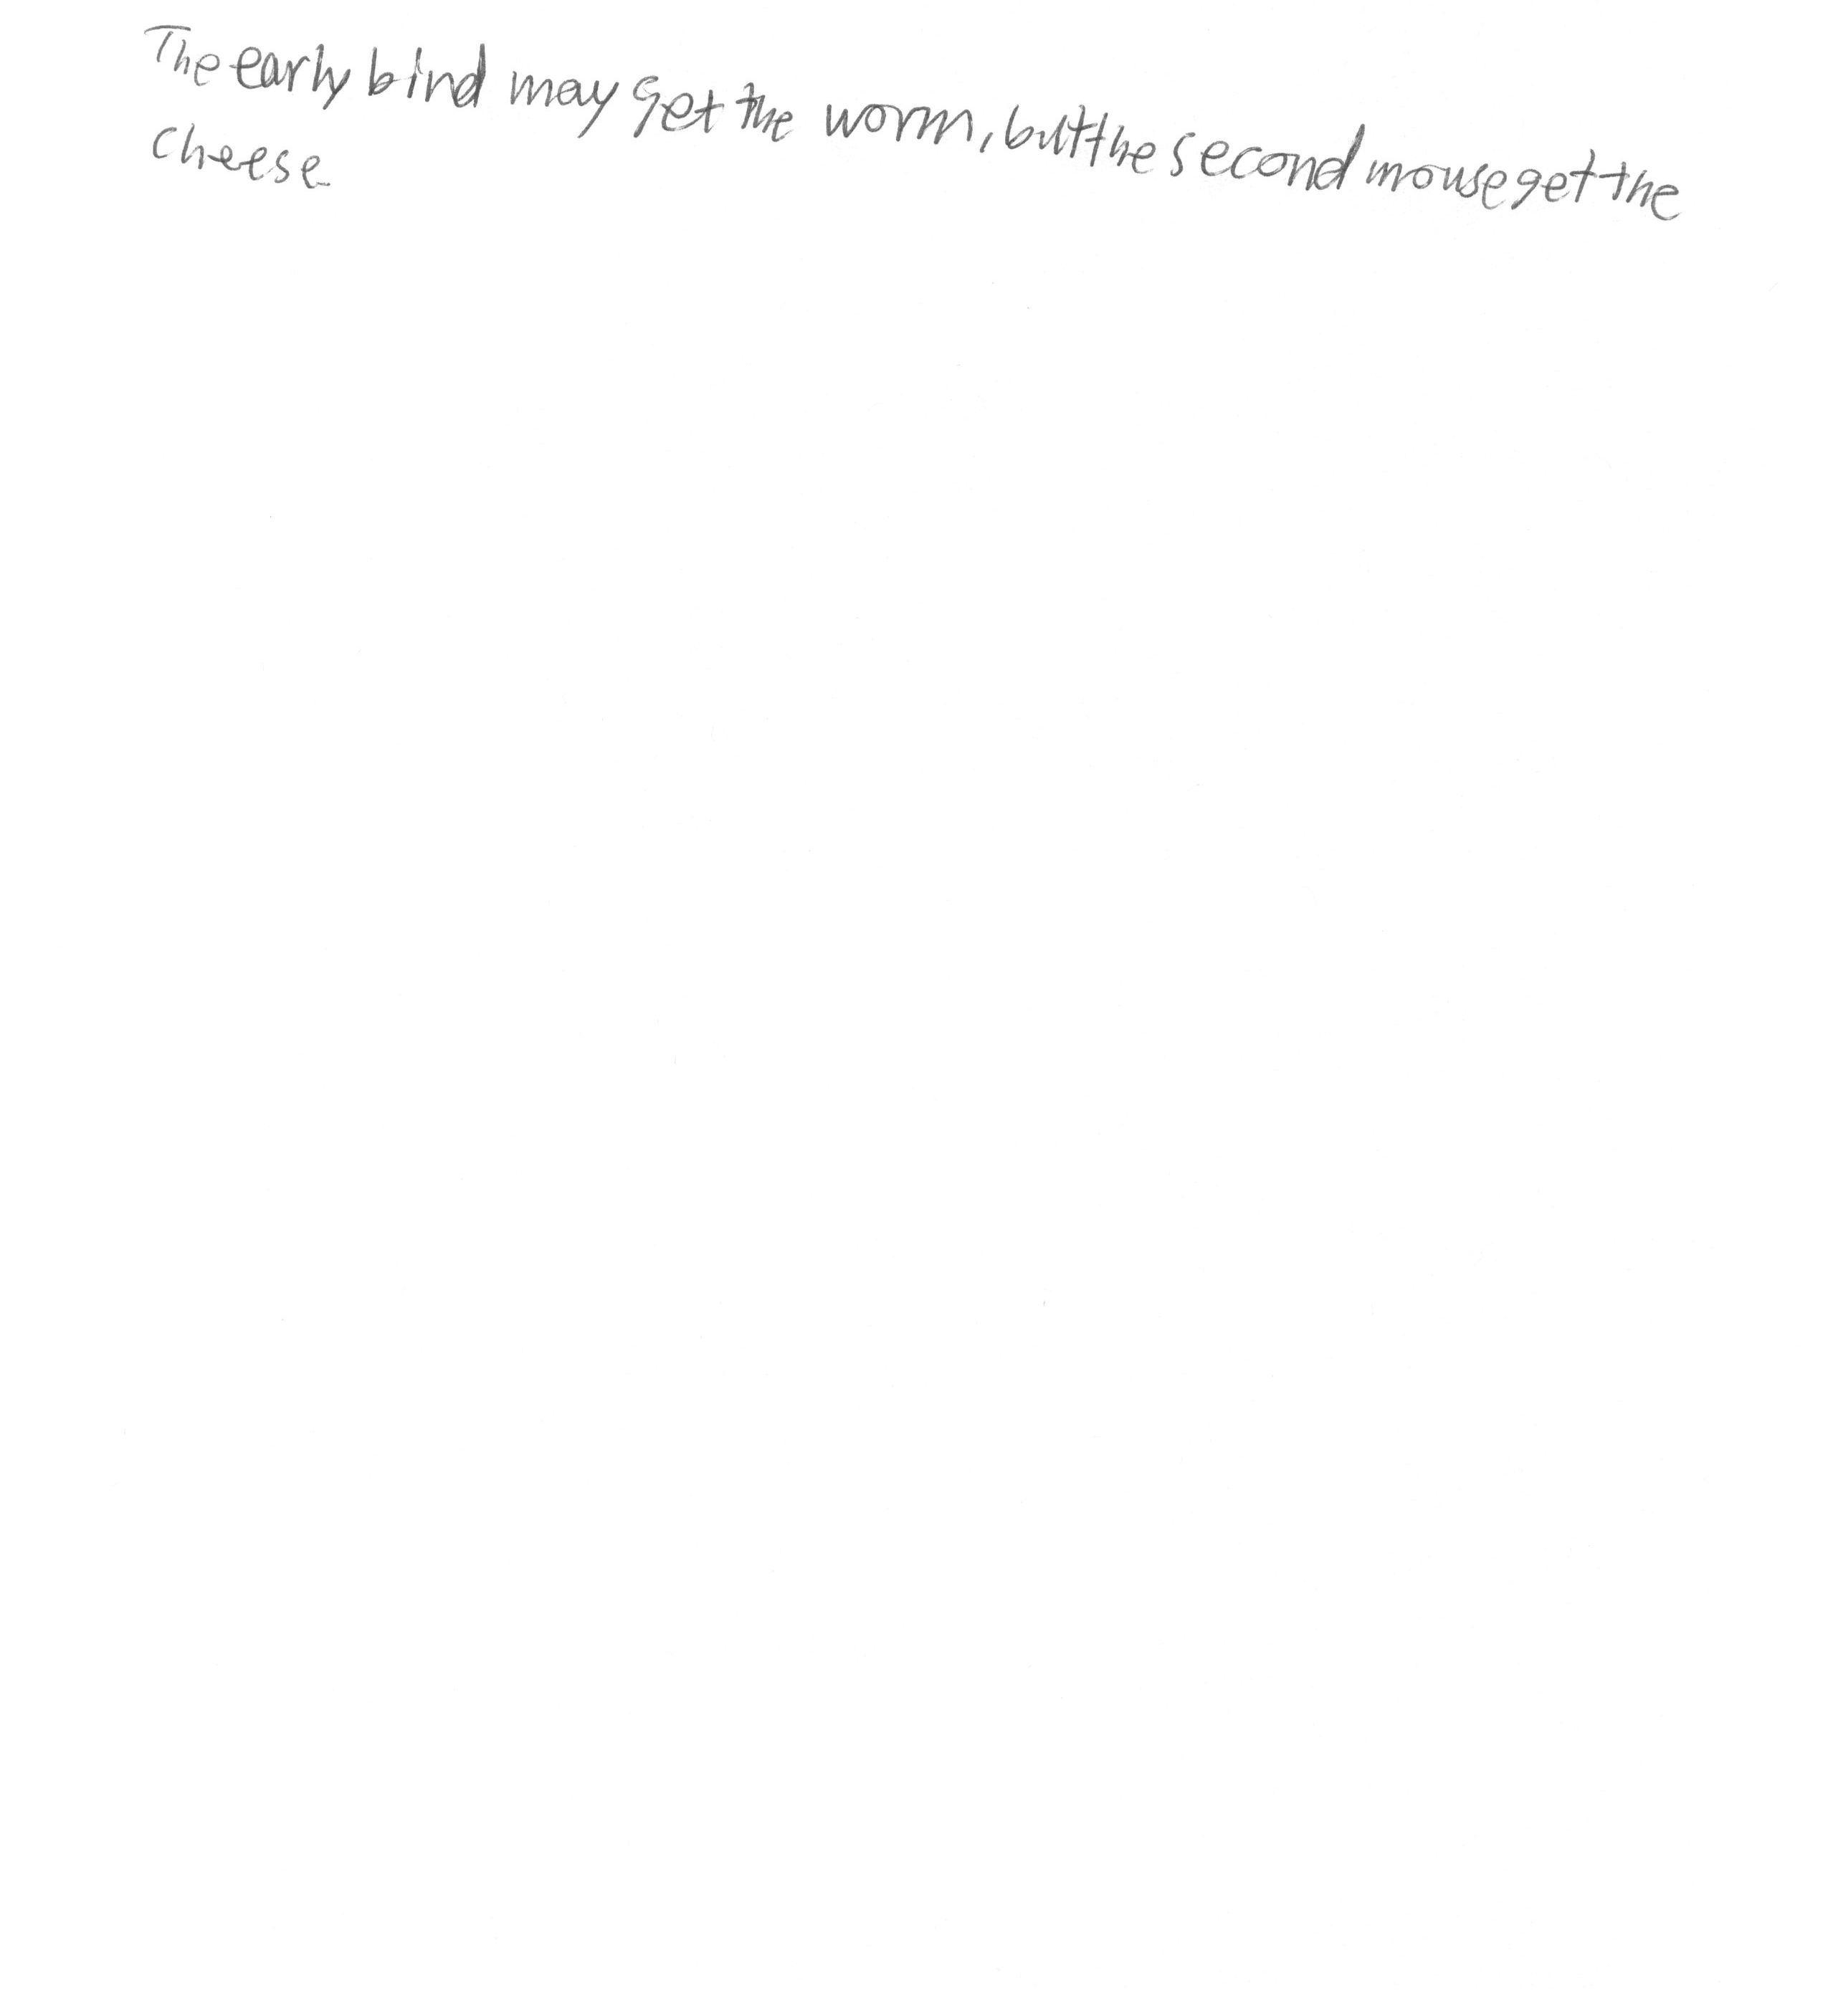 The early bird may get the worm, but the second mouse get the
cheese